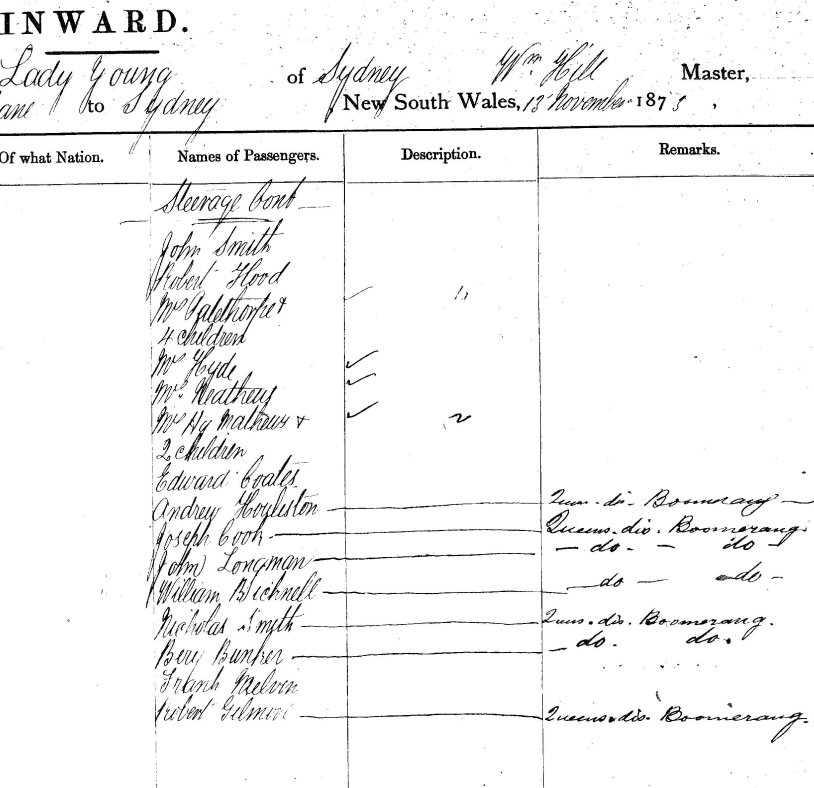 INWARD.
Lady Young of Sydney Wm Hill Master,
ane to Sydney New South Wales, 13 November 1875,
Of what Nation. Names of Passengers. Description. Remarks.
Steerage Cont
John Smith
Robert Hood
Mrs &
4 children
Mrs Hyde
Mrs
Mrs Hy Mathews & 2
2 children
Edward Coates
Andrew Hoyleston Queens. dis. Boomerang
Joseph Coon Queens. dis. Boomerang
John Longman - do - do -
William Bicknell - do - do -
Nicholas Smyth Queens. dis. Boomerang.
Benj Bunker - do. do.
Frank Melvin
Robert Gilmore Queens. dis. Boomerang.